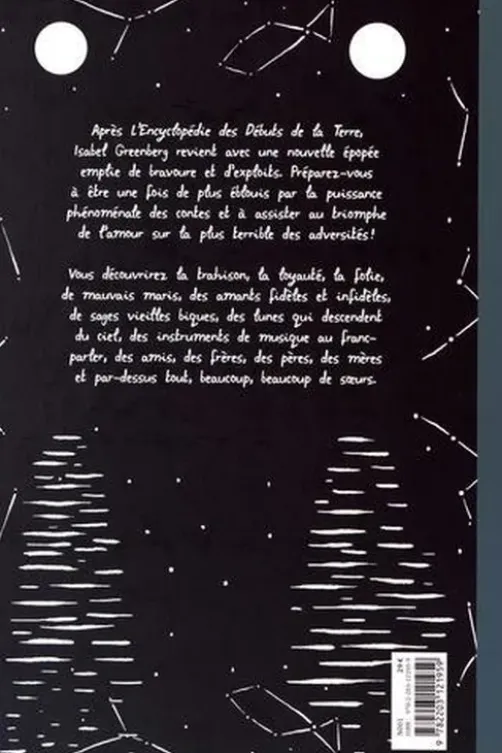 Après L'Encyclopédie des Débuts de la Terre,
Isabel Greenberg revient avec une nouvelle épopée
emplie de bravoure et d'exploits. Préparez-vous
à être une fois de plus éblouis par la puissance
phénoménale des contes et à assister au triomphe
de l'amour sur la plus terrible des adversités!
Vous découvrirez la trahison, la loyauté, la folie,
de mauvais maris, des amants fidèles et infidèles,
de sages vieilles biques, des lunes qui descendent
du ciel, des instruments de musique au franc-
parler, des amis, des frères, des pères, des mères
et par-dessus tout, beaucoup, beaucoup de sœurs.
29 €
9 782203 121959